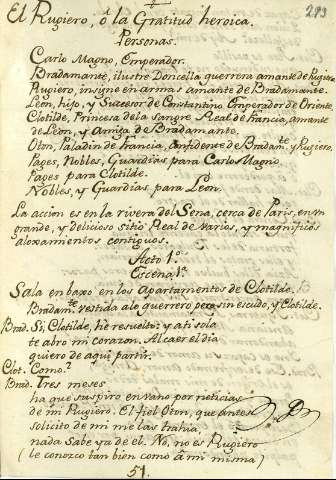 283
El Rugiero, ô la Gratitud heroica.
Personas.
Carlo Magno, Emperador.
Bradamante, ilustre Doncella guerrera amante de Rugiero
Rugiero, insigne en armas amante de Bradamante.
Leon, hijo, y Sucesor de Constantino Emperador de Oriente.
Clotilde, Princesa de la sangre Real de Francia, amante
de Leon, y Amiga de Bradamante.
Oton, Paladin de Francia, Confidente de Bradam.te y Rugiero.
Pages, Nobles, Guardias para Carlo Magno
Pages para Clotilde.
Nobles, y Guardias para Leon.
La accion es en la rivera del Sena, cerca de Paris, en un
grande, y delicioso sitio Real de varios, y magnificos
aloxamientos contiguos.
Acto 1.º
Escena 1.ª
Sala en baxo en los Apartamentos de Clotilde.
Bradam.te vestida a lo guerrero pero sin escudo, y Clotilde.
Brad. Si, Clotilde, hè resuelto: y a ti sola
te abro mi corazon. Al caer el dia
quiero de aqui partir.
Clot. Como?
Brad. Tres meses
ha que suspiro en vano por noticias
de mi Rugiero. El fiel Oton, que antes
solicito de mi me las trahia,
nada sabe ya de el. No, no es Rugiero
(le conozco tan bien como â mi misma)
51.